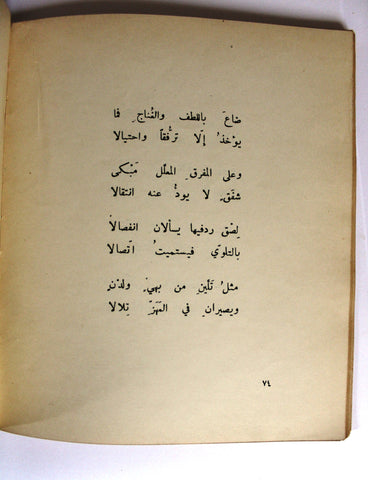 ضاعَ باللطف والغُناجِ فما
يؤخذُ إلّا ترفُّقاً واحتيالا
وعلى المفرقِ المعلّل مَبْكى
شفَقٍ لا يودُّ عنه انتقالا
لِصْق ردفيها يسألان انفصالاً
بالتلوّي فيستميتُ اتّصالا
مثلُ تَلّينِ من بهيّ ولدْنٍ
ويصيرانِ في المَهَزِّ تِلالا
٧٤